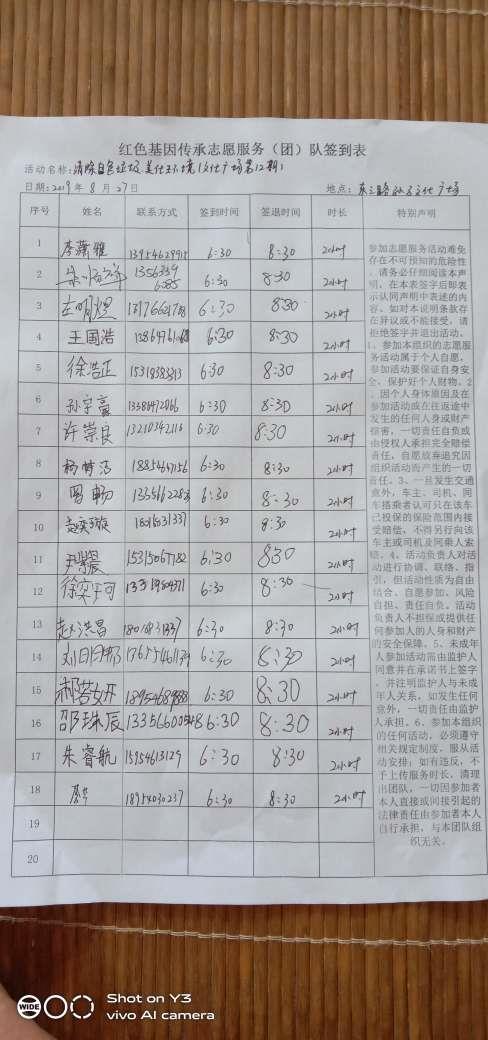 红色基因传承志愿服务（团）队签到表
活动名称：清除白色垃圾 美化环境（文化广场第12期）
日期：2019年 8月 27日 地点：东三路 文化广场
序号 姓名 联系方式 签到时间 签退时间 时长 特别声明
1 李潇雅 13954629915 6:30 8:30 2小时
2 6:30 8:30 2小时
3 6:30 8:30 2小时
4 王国浩 6:30 8:30 2小时
5 徐浩正 15318383813 6:30 8:30 2小时
6 孙宇豪 13386472066 6:30 8:30 2小时
7 许崇良 13210342116 6:30 8:30 2小时
8 1885467156 6:30 8:30 2小时
9 1335662283 6:30 8:30 2小时
10 6:30 8:30 2小时
11 15315067182 6:30 8:30 2小时
12 6:30 8:30 2小时
13 赵洪昌 6:30 8:30 2小时
14 6:30 8:30 2小时
15 18954689888 6:30 8:30 2小时
16 邵珠辰 13356600548 6:30 8:30 2小时
17 朱睿航 15954613129 6:30 8:30 2小时
18 18954030237 6:30 8:30 2小时
19
20
参加志愿服务活动难免
存在不可预知的危险性
，请务必仔细阅读本声
明，在本表签字后即表
示认同声明中表述的内
容。如对本说明条款存
在异议或不能接受，请
拒绝签字并退出活动。
1、参加本组织的志愿服
务活动属于个人自愿，
参加活动要保证自身安
全、保护好个人财物。2
、因个人身体原因及在
参加活动或在往返途中
发生的任何人身或财产
损害，一切责任自负或
由侵权人承担完全赔偿
责任，自愿放弃追究因
组织活动而产生的一切
责任。3、一旦发生交通
意外，车主、司机、同
车搭乘者认可只在该车
已投保的保险范围内接
受赔偿，不得另行向该
车主或司机及同乘人索
赔。4、活动负责人对活
动进行协调、联络、指
引，但活动性质为自由
结合、自愿参加、风险
自担、责任自负。活动
负责人不担保或提供任
何参加人的人身和财产
的安全保障。5、未成年
人参加活动需由监护人
同意并在承诺书上签字
，并注明监护人与未成
年人关系，如发生任何
意外，一切责任由监护
人承担。6、参加本组织
的任何活动，必须遵守
相关规定制度，服从活
动安排；如有违反，不
予上传服务时长，清理
出团队，一切因参加者
本人直接或间接引起的
法律责任由参加者本人
自行承担，与本团队组
织无关。
WIDE
Shot on Y3
vivo AI camera